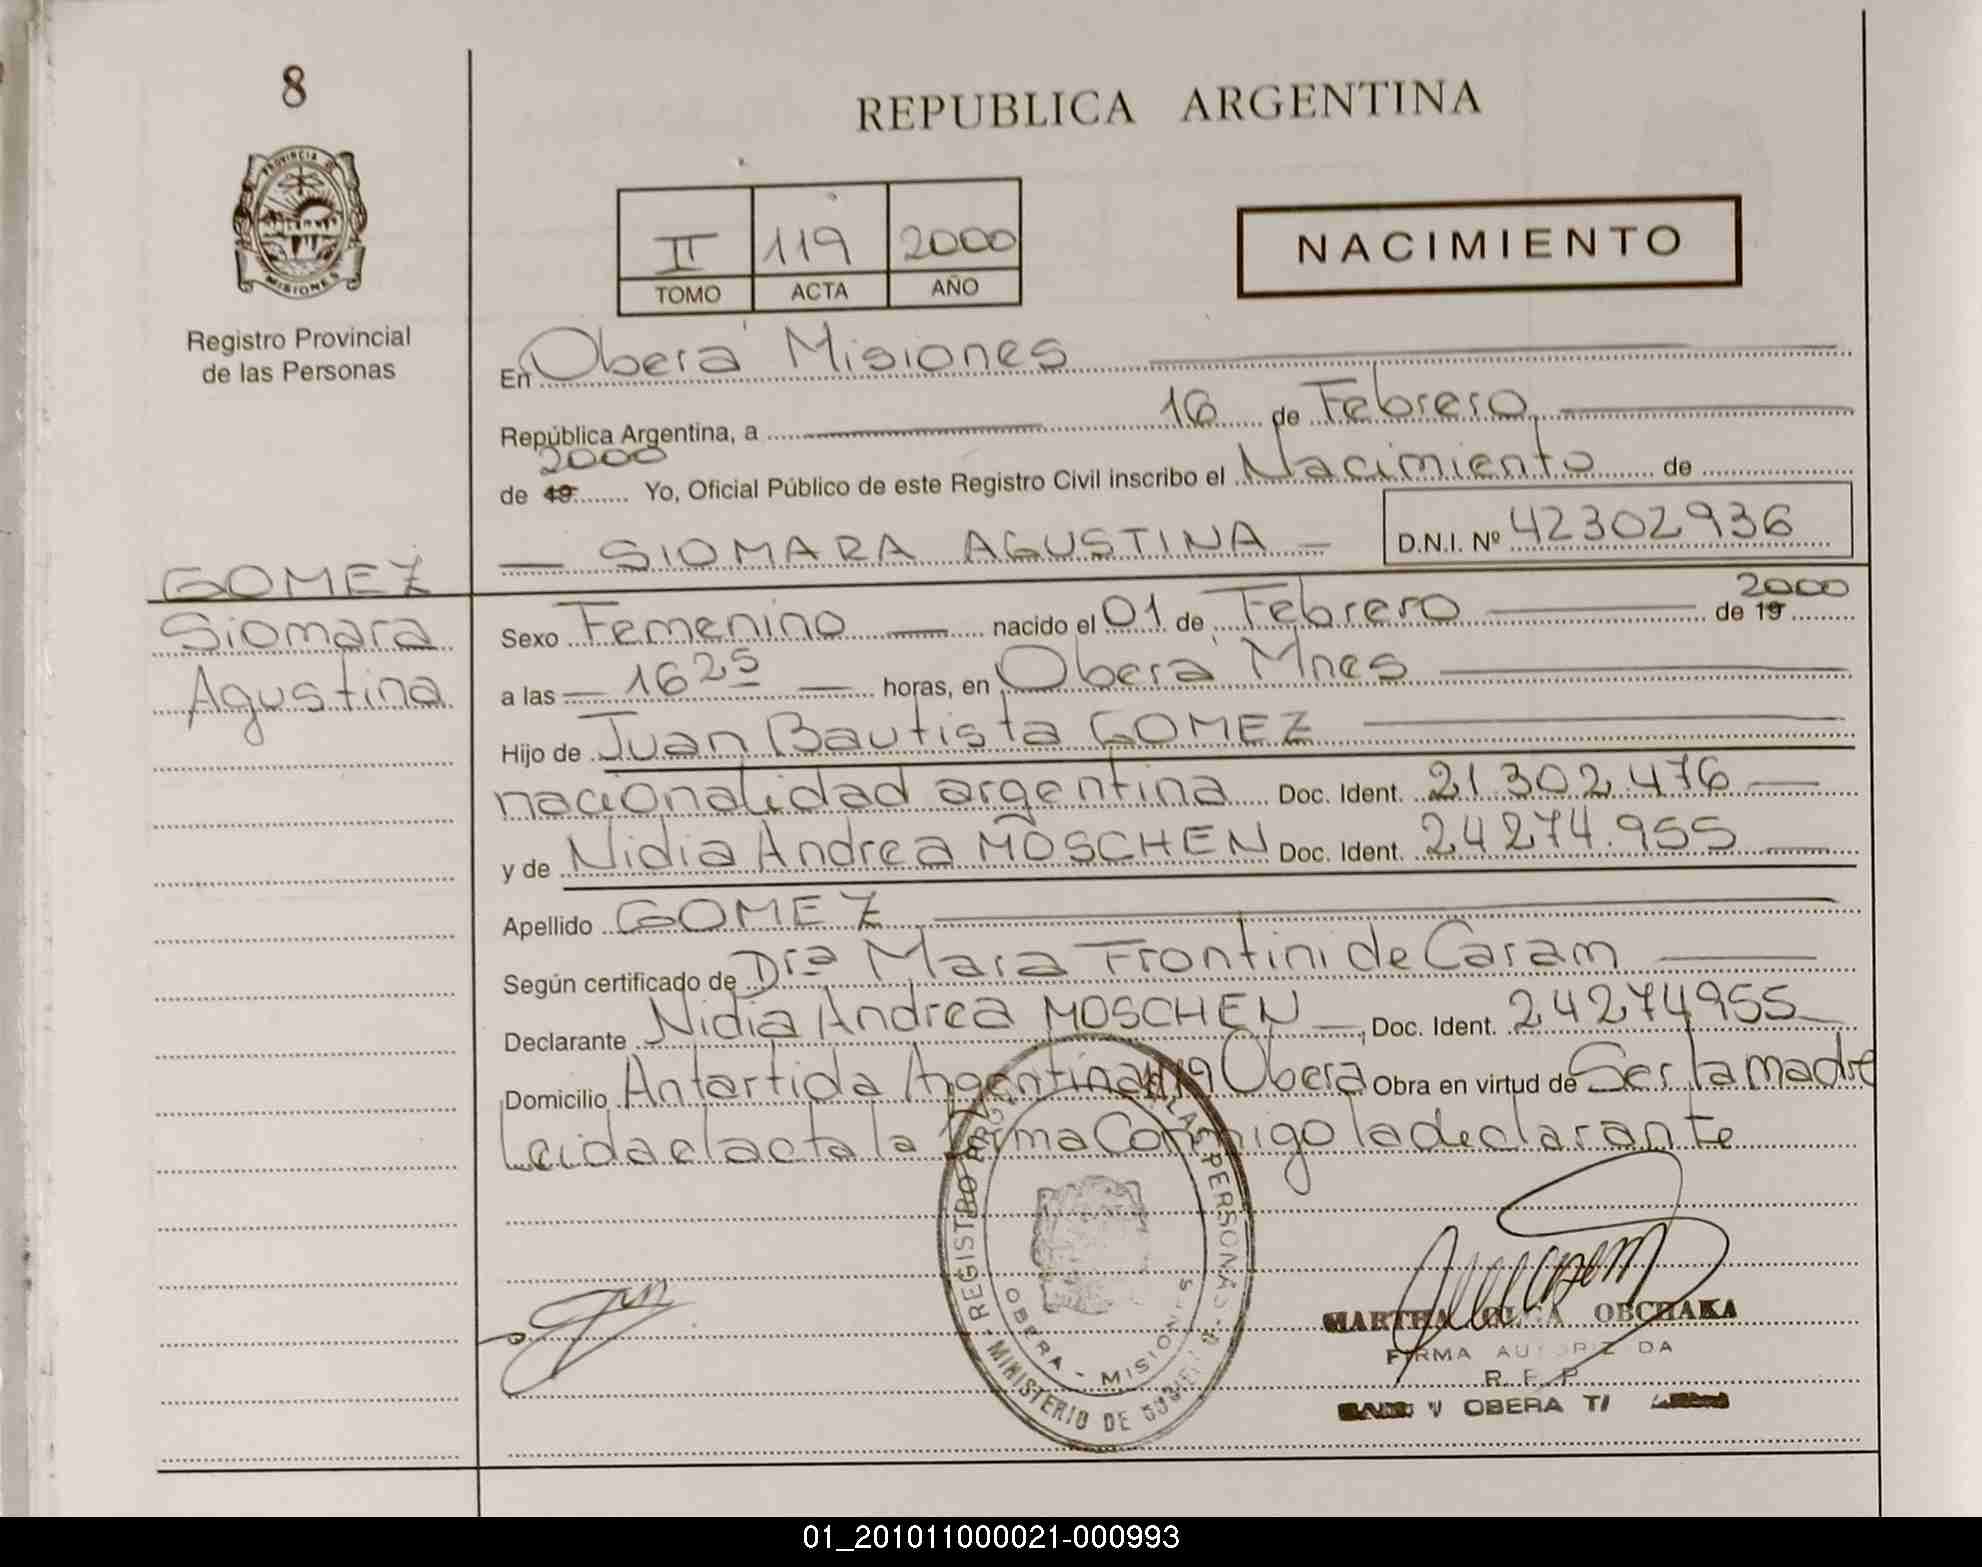 8
PROVINCIA D
MISIONES
Registro Provincial
de las Personas
GOMEZ
Siomara
Agustina
REPUBLICA ARGENTINA
II 119 2000
TOMO ACTA AÑO
NACIMIENTO
En Oberá Misiones
República Argentina, a 16 de Febrero
2000
de 19 Yo, Oficial Público de este Registro Civil inscribo el Nacimiento de
SIOMARA AGUSTINA D.N.I. Nº 42302936
Sexo Femenino nacido el 01 de Febrero de 19 2000
a las 16 25 horas, en Oberá Mnes
Hijo de Juan Bautista GOMEZ
nacionalidad argentina Doc. Ident. 21.302.476
y de Nidia Andrea MOSCHEN Doc. Ident. 24274.955
Apellido GOMEZ
Según certificado de Dra Mara Frontini de Caram
Declarante Nidia Andrea MOSCHEN, Doc. Ident. 24274955
Domicilio Antartida Argentina Oberá Obra en virtud de Ser la madre
Leida el acta la firma Conmigo la declarante
REGISTRO PERSONAS
OBERA - MISIONES
MINISTERIO DE
MARTHA OLGA OBCHAKA
FIRMA AUTORIZADA
R. F. P.
OBERA
01_201011000021-000993